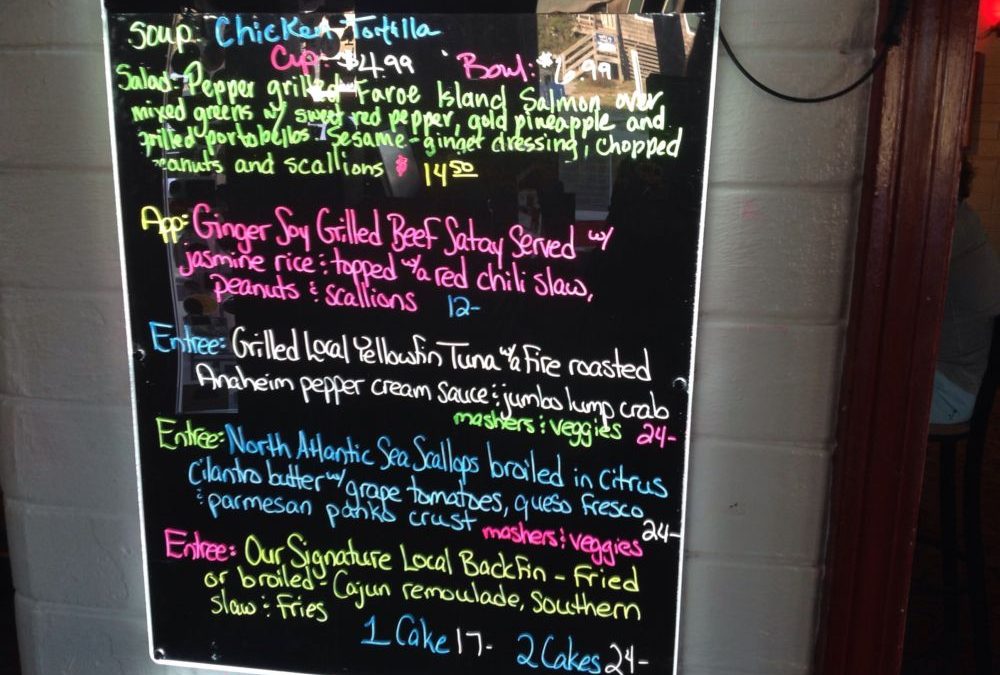 Soup: Chicken Tortilla
Cup: $4.99 Bowl: $6.99
Salad: Pepper grilled Faroe Island Salmon over
mixed greens w/ sweet red pepper, gold pineapple and
grilled portobellos. Sesame-ginger dressing, chopped
peanuts and scallions $ 14.50
App: Ginger Soy Grilled Beef Satay Served w/
jasmine rice & topped w/a red chili slaw,
peanuts & scallions 12-
Entree: Grilled Local Yellowfin Tuna w/a Fire roasted
Anaheim pepper cream sauce & jumbo lump crab
mashers & veggies 24-
Entree: North Atlantic Sea Scallops broiled in Citrus
Cilantro butter w/ grape tomatoes, queso fresco
& parmesan panko crust mashers & veggies 24-
Entree: Our Signature Local Backfin - Fried
or broiled - Cajun remoulade, Southern
Slaw & Fries
1 Cake 17- 2 Cakes 24-